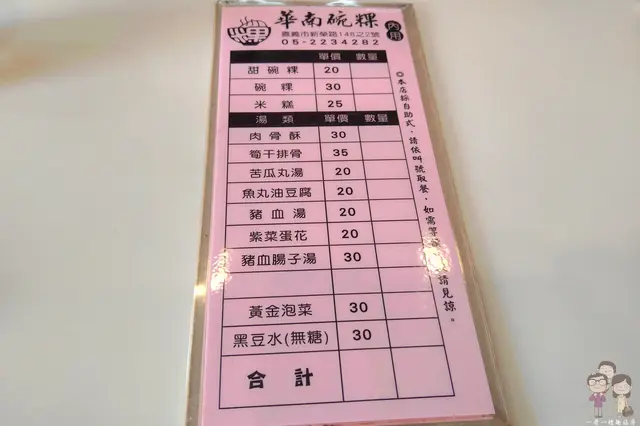 華南碗粿
內用
嘉義市新榮路148之2號
05-2234282
單價 數量
甜碗粿 20
碗粿 30
米糕 25
湯類 單價 數量
肉骨酥 30
筍干排骨 35
苦瓜丸湯 20
魚丸油豆腐 20
豬血湯 20
紫菜蛋花 20
豬血腸子湯 30
黃金泡菜 30
黑豆水(無糖) 30
合計
◎本店採自助式，請依叫號取餐，如需等
請見諒。